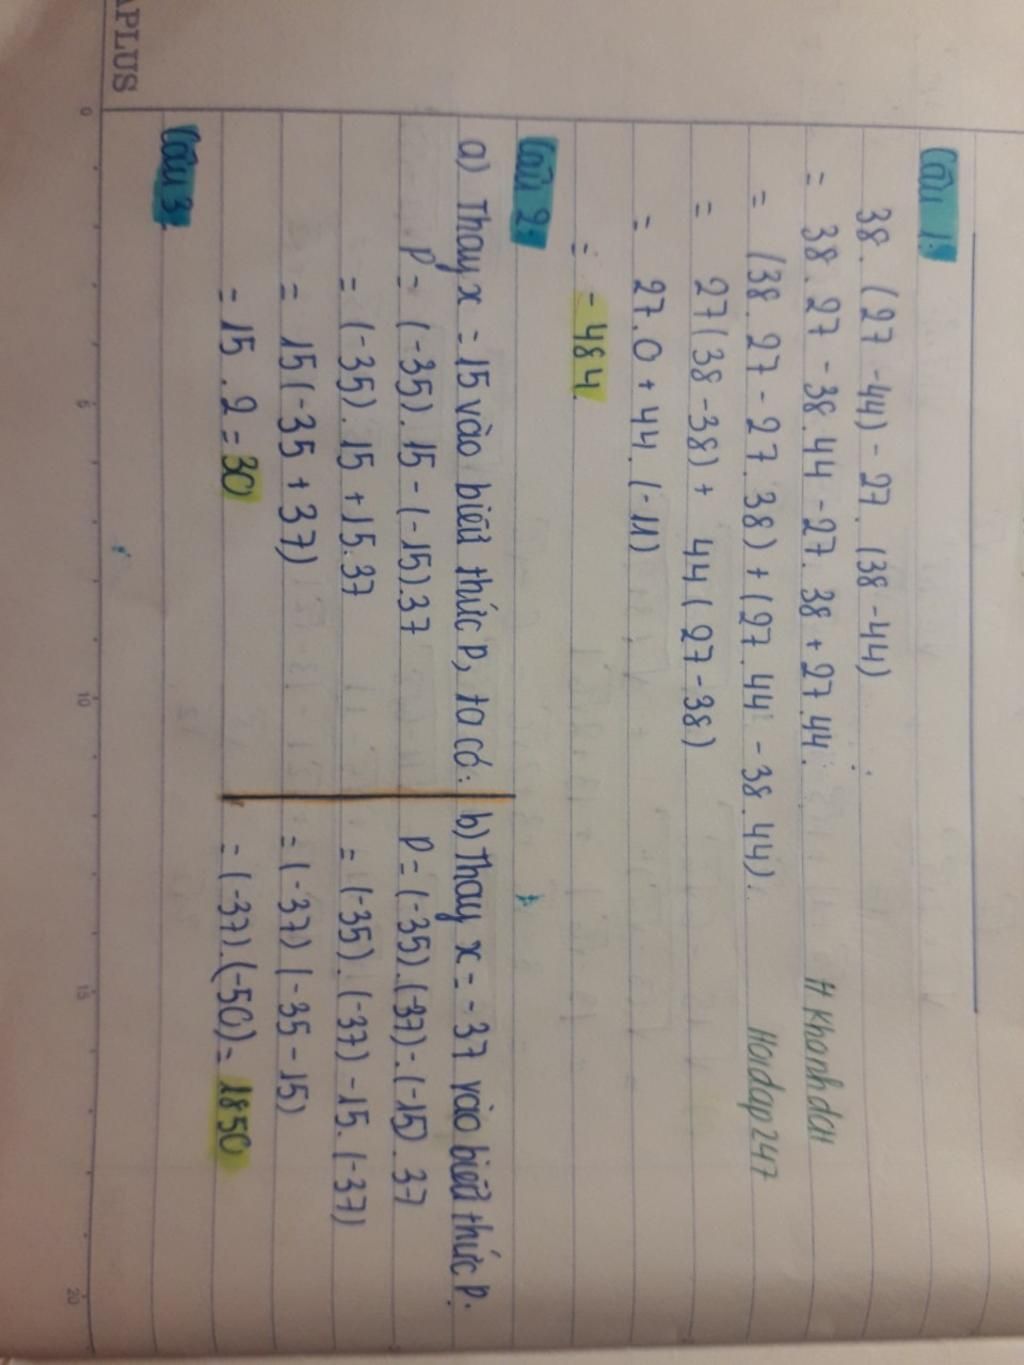 Câu 1:
38. (27 - 44) - 27. (38 - 44)
= 38. 27 - 38. 44 - 27. 38 + 27. 44.
# Khanhdall
= (38. 27 - 27. 38) + (27. 44 - 38. 44).
Hoidap247
= 27(38 - 38) + 44(27 - 38)
= 27.0 + 44. (-11)
= -484.
Câu 2:
a) Thay x = 15 vào biểu thức P, ta có:
P = (-35). 15 - (-15). 37
= (-35). 15 + 15. 37
= 15(-35 + 37)
= 15. 2 = 30
b) Thay x = -37 vào biểu thức P.
P = (-35). (-37) - (-15). 37
= (-35). (-37) - 15. (-37)
= (-37)(-35 - 15)
= (-37). (-50) = 1850
Câu 3
APLUS
0 5 10 15 20